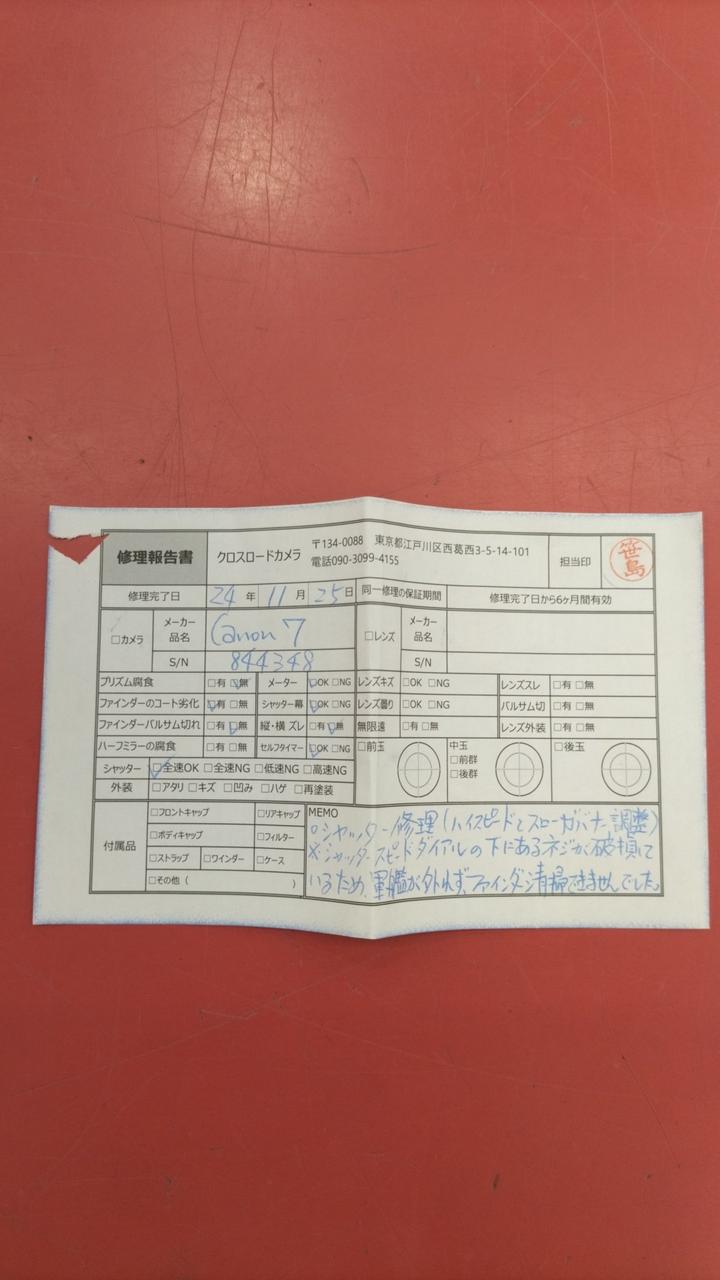 修理報告書 クロスロードカメラ 〒134-0088 東京都江戸川区西葛西3-5-14-101
電話090-3099-4155 担当印 笹島
修理完了日 24 年 11 月 25 日 同一修理の保証期間 修理完了日から6ヶ月間有効
□カメラ メーカー品名 Canon 7 □レンズ メーカー品名
S/N 844348 S/N
プリズム腐食 □有 □無 メーター □OK □NG レンズキズ □OK □NG レンズスレ □有 □無
ファインダーのコート劣化 □有 □無 シャッター幕 □OK □NG レンズ曇り □OK □NG バルサム切 □有 □無
ファインダーバルサム切れ □有 □無 縦・横 ズレ □有 □無 無限遠 □有 □無 レンズ外装 □有 □無
ハーフミラーの腐食 □有 □無 セルフタイマー □OK □NG □前玉 中玉 □前群 □後群 □後玉
シャッター □全速OK □全速NG □低速NG □高速NG
外装 □アタリ □キズ □凹み □ハゲ □再塗装
付属品 □フロントキャップ □リアキャップ
□ボディキャップ □フィルター
□ストラップ □ワインダー □ケース
□その他（ ）
MEMO
○シャッター修理(ハイスピードとスローガバナー調整)
※シャッタースピードダイアルの下にあるネジが破損して
いるため、軍艦が外れず、ファインダー清掃できませんでした。